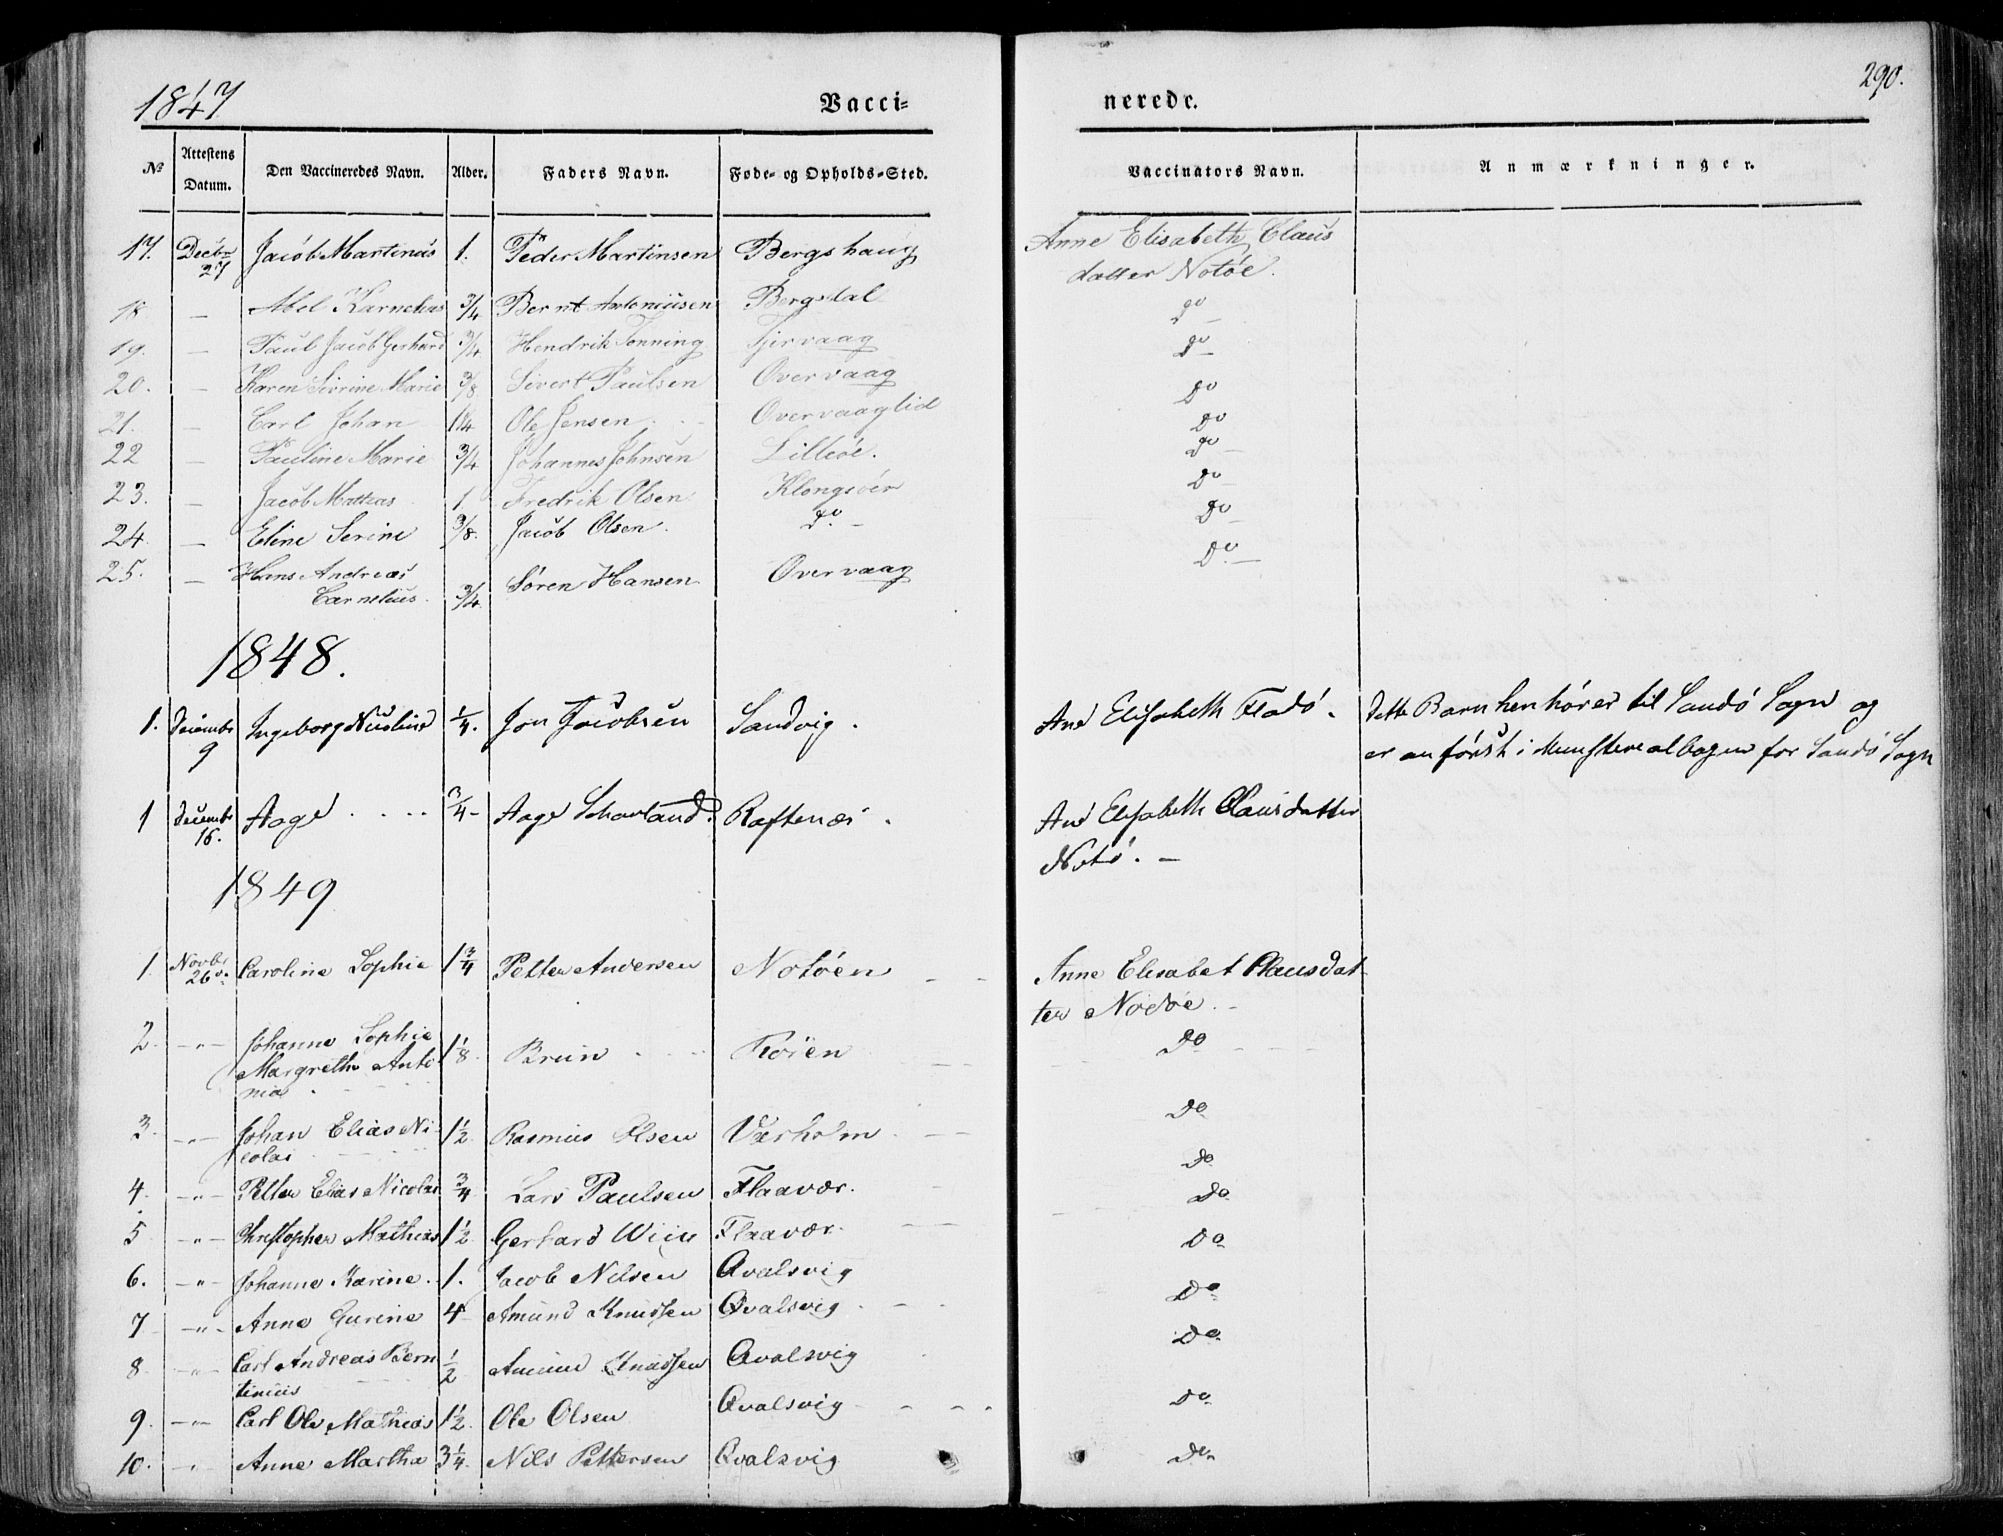 1847
Vacci=
nerede.
290.
No
Attestens Datum.
Den Vaccineredes Navn.
Alder.
Faders Navn.
Føde= og Opholds=Sted.
Vaccinators Navn.
Anmærkninger.
17. Decbr 27 Jacob Martinus 1. Peder Martinsen Bergshaug Anne Elisabeth Claus
datter Notøe.
18 — Abel Karnelius 3/4 Bernt Antoniusen Bergsdal do —
19. — Paul Jacob Gerhard 3/4 Hendrik Tønning Tjervaag Do —
20. — Karen Sivrine Marie 3/8 Sivert Paulsen Overvaag Do
21. — Carl Johan 1 1/4 Ole Jensen Overvaaglid Do
22 — Pauline Marie 3/4 Johannes Johnsen Lilleøe. Do —
23. — Jacob Mathias 1 Fredrik Olsen Do —
24. — Eline Serine 3/8. Jacob Olsen. Do — Do —
25. — Hans Andreas
Cornelius. 3/4 Søren Hansen Overvaag Do —
1848.
1. Decembr 9 Ingeborg 1/4. Jon Jacobsen Sandvig. Ane Elisabeth Flodø. dette Barn henhører til Sandø Sogn og
er anført i Ministerialbogen for Sandø Sogn
1 Decembr 16. Aage . . . . 3/4 - Aage Schavland. Raftenæs. Ane Elisabeth Clausdatter
Notø. —
1849
1. Novbr 26. Caroline Sophie 1 3/4 Petter Andersen Notøen — — Anne Elisabet Clausdat-
ter Nodøe. -
2. -"- Johanne Sophie
Margrethe Anto
nia 1 1/8. Bruun Do
3. -"- Johan Elias Ni-
colai 1 1/2. Rasmus Olsen Værholm Do
4. -"- Petter Elias Nicolai 3/4 Lars Paulsen Flaavær. Do
5 -"- Christopher Mathias 1 1/2 Gerhard Wiig Flaavær. Do
6. -"- Johanne Karine 1. Jacob Nilsen Qvalsvig Do
7 -"- Anne Gurine 4 Amund Knudsen Qvalsvig Do
8. -"- Carl Andreas Bern
tinius 1/2 Amund Knudsen Qvalsvig Do
9. -"- Carl Ole Mathias 1 1/2. Ole Olsen Qvalsvig Do
10. " Anne Martha 3 1/4. Nils Pettersen Qvalsvig Do